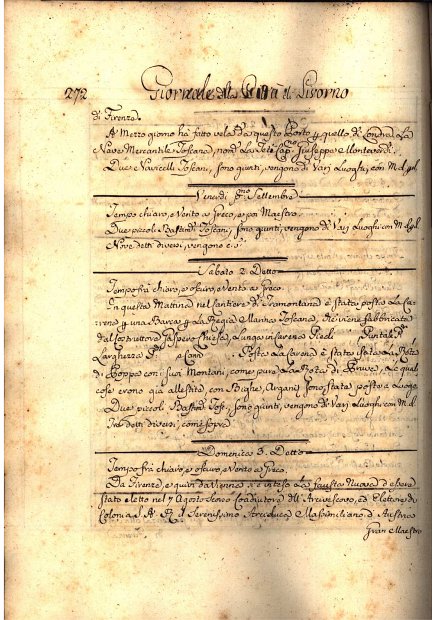 272 Giornale di Livorno
di Firenze.
A Mezzo giorno ha fatto vela da questo Porto p quello di Londra La
Nave Mercantile Toscana, nom.ª La Teti Cap.no Giuseppe Monteverdi.
Due Navicelli Toscani, sono giunti, vengono di Varj Luoghi, con M. d. pl.
Venerdi p.mo Settembre
Tempo chiaro, e Vento a Greco, e poi Maestro.
Due piccoli Bastim.ti Toscani, sono giunti, vengono di Varj Luoghi con M. d. pl.
Nove detti diversi, vengono
Sabato 2 Detto
Tempo frà chiaro, e oscuro, e Vento a Greco.
In questa Mattina nel Cantiere di Tramontana è stata posta La Ca-
rena p una Barca p La Regia Marina Toscana, che viene fabbricata
dal Costruttore Gaspero Chiesa, Lunga in Carena Piedi Puntale P.
Larghezza P. e Posta La Carena è stata
di Poppa con i suoi Montani, come pure La Rota di Prua, Le quali
cose erono già allestite, con Bighe, Argani sono, state poste a Luogo.
Due piccoli Bastim.ti Tosc.i, sono giunti, vengono di Varj Luoghi con M. d.
detti diversi, come sopra
Domenica 3. Detto
Tempo frà chiaro, e oscuro, e Vento a Greco.
Da Firenze, e quivi da Vienna s'è inteso La fausta Nuova d'essere
stato eletto nel 7 Agosto Scorso Coadiutore dell'Arcivescovo, ed Elettore di
Colonia S. A. R. il Serenissimo Arciduca Massimiliano d'Austria
Gran Maestro